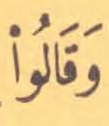 وَقَالُوا۟